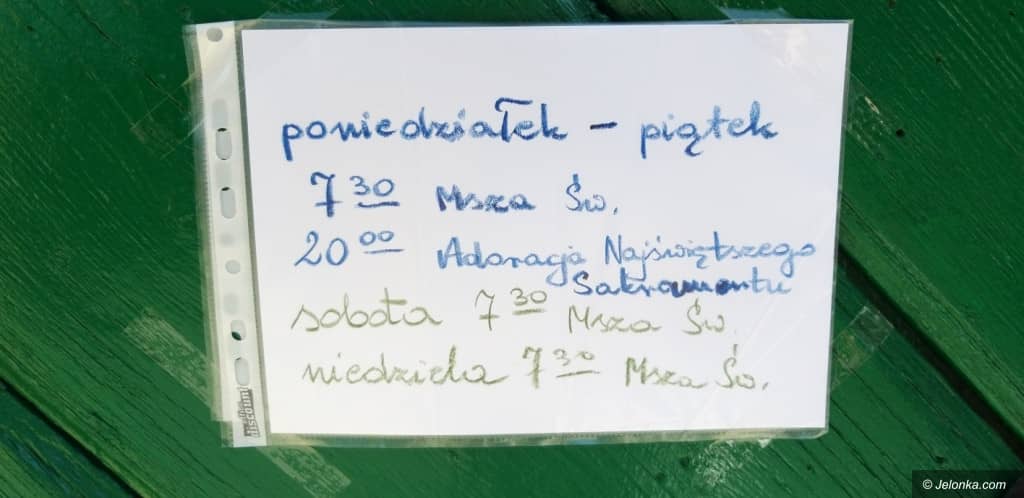 poniedziałek – piątek
7 30 Msza Św.
20 00 Adoracja Najświętszego
Sakramentu
sobota 7 30 Msza Św.
niedziela 7 30 Msza Św.
discount
© Jelonka.com